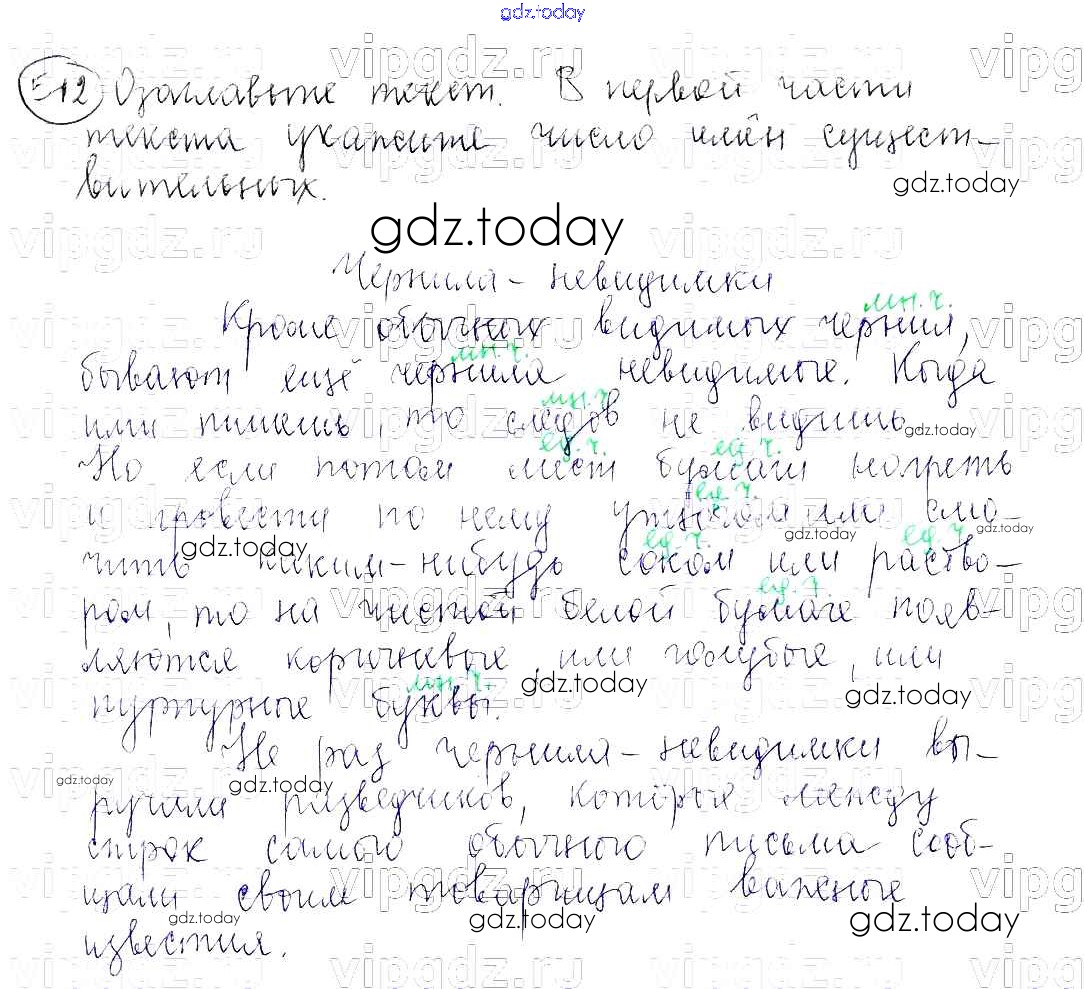 gdz.today
512 Озаглавьте текст. В первой части
текста укажите число имён сущест-
вительных.
gdz.today
gdz.today
Чернила-невидимки
мн.ч.
Кроме обычных видимых чернил,
мн.ч.
бывают ещё чернила невидимые. Когда
мн.ч.
ими пишешь, то следов не видишь.
gdz.today
ед.ч. ед.ч.
Но если потом лист бумаги нагреть
ед.ч.
и провести по нему утюгом или смо-
gdz.today gdz.today gdz.today
ед.ч. ед.ч.
чить каким-нибудь соком или раство-
ед.ч.
ром, то на чистой белой бумаге появ-
ляются коричневые, или голубые, или
мн.ч.
gdz.today gdz.today
пурпурные буквы.
Не раз чернила-невидимки вы-
gdz.today gdz.today
ручали разведчиков, которые между
строк самого обычного письма сооб-
щали своим товарищам важные
gdz.today gdz.today gdz.today
известия.
vipgdz.ru